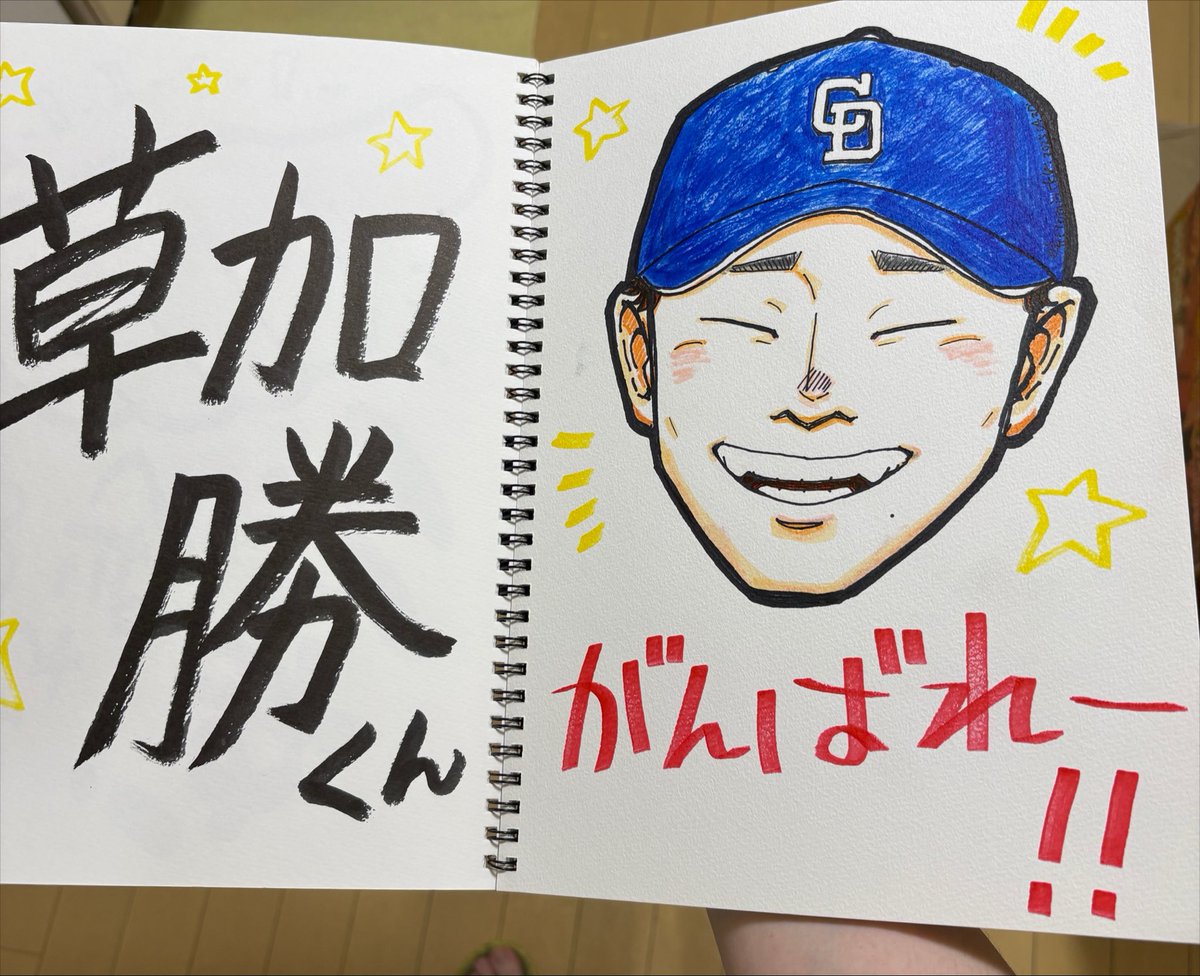 草加
勝
くん
CD
がんばれー
!!